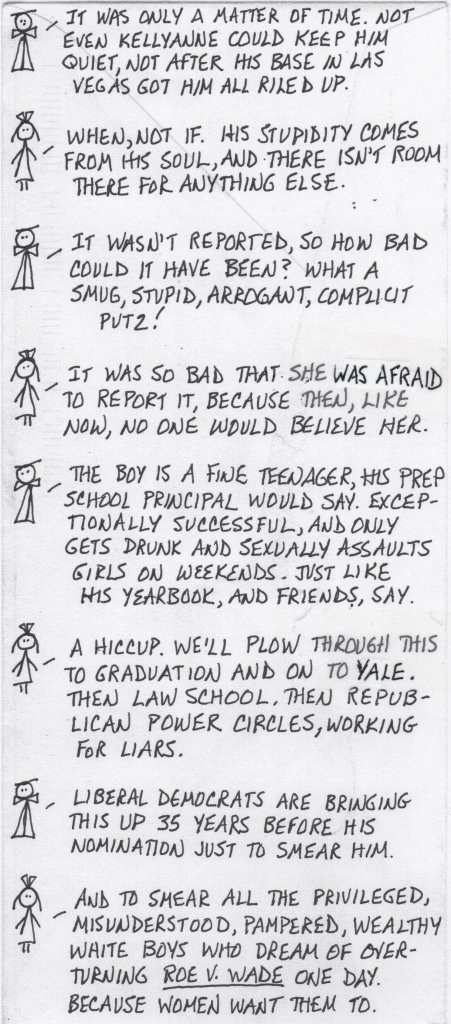 IT WAS ONLY A MATTER OF TIME. NOT
EVEN KELLYANNE COULD KEEP HIM
QUIET, NOT AFTER HIS BASE IN LAS
VEGAS GOT HIM ALL RILED UP.
WHEN, NOT IF. HIS STUPIDITY COMES
FROM HIS SOUL, AND THERE ISN'T ROOM
THERE FOR ANYTHING ELSE.
IT WASN'T REPORTED, SO HOW BAD
COULD IT HAVE BEEN? WHAT A
SMUG, STUPID, ARROGANT, COMPLICIT
PUTZ!
IT WAS SO BAD THAT SHE WAS AFRAID
TO REPORT IT, BECAUSE THEN, LIKE
NOW, NO ONE WOULD BELIEVE HER.
THE BOY IS A FINE TEENAGER, HIS PREP
SCHOOL PRINCIPAL WOULD SAY. EXCEP-
TIONALLY SUCCESSFUL, AND ONLY
GETS DRUNK AND SEXUALLY ASSAULTS
GIRLS ON WEEKENDS. JUST LIKE
HIS YEARBOOK, AND FRIENDS, SAY.
A HICCUP. WE'LL PLOW THROUGH THIS
TO GRADUATION AND ON TO YALE.
THEN LAW SCHOOL. THEN REPUB-
LICAN POWER CIRCLES, WORKING
FOR LIARS.
LIBERAL DEMOCRATS ARE BRINGING
THIS UP 35 YEARS BEFORE HIS
NOMINATION JUST TO SMEAR HIM.
AND TO SMEAR ALL THE PRIVILEGED,
MISUNDERSTOOD, PAMPERED, WEALTHY
WHITE BOYS WHO DREAM OF OVER-
TURNING ROE V. WADE ONE DAY.
BECAUSE WOMEN WANT THEM TO.